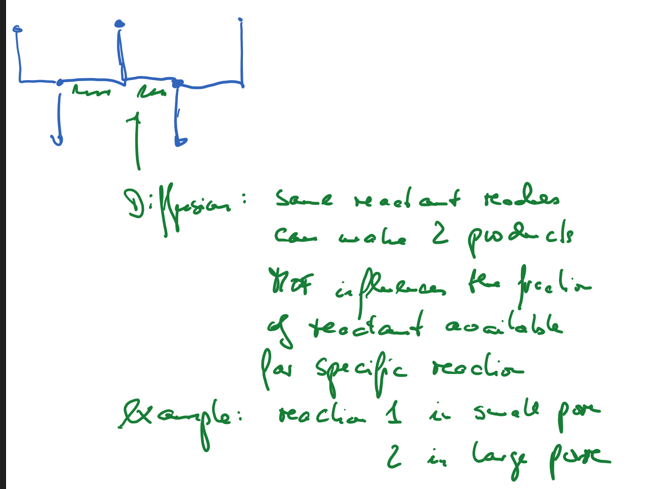 Diffusion: same reactant reaches
can make 2 products
MOF influences the fraction
of reactant available
for specific reaction
Example: reaction 1 in small pore
2 in large pore